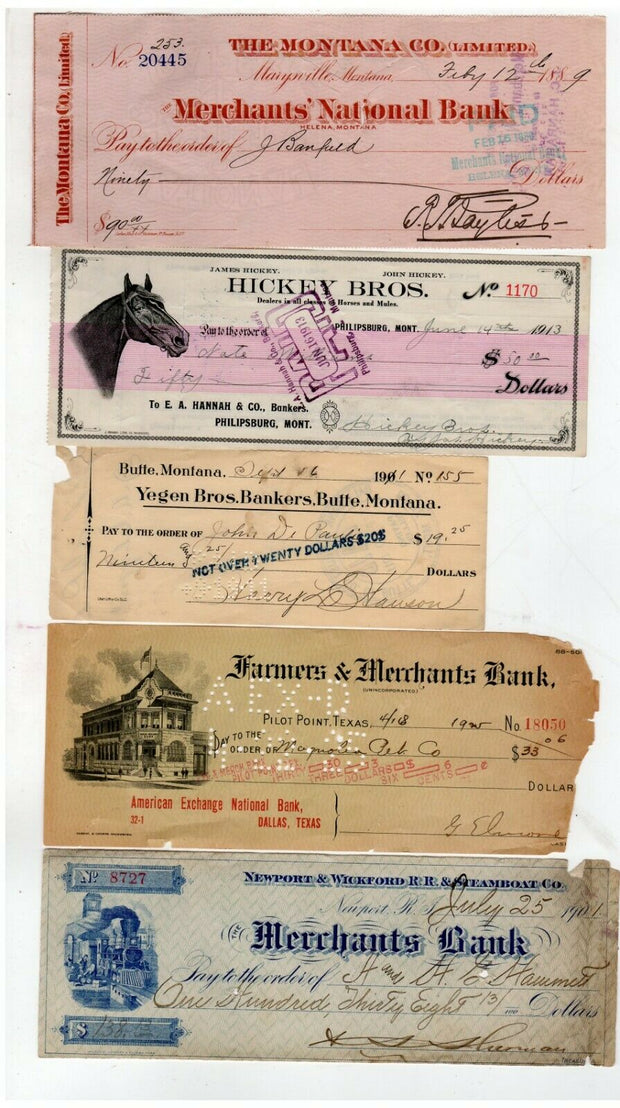 The Montana Co. (Limited.)
No. 253.
20445
THE MONTANA CO. (LIMITED.)
Marysville, Montana, Feby 12th 1889
THE Merchants' National Bank
HELENA, MONTANA
Pay to the order of J Banfield
Ninety Dollars
$90 00/xx
PAID
FEB 15
Merchants National
HELENA
JAMES HICKEY. JOHN HICKEY.
HICKEY BROS. No. 1170
Dealers in all classes of Horses and Mules.
PHILIPSBURG, MONT. June 14th 1913
Pay to the order of Nate
$50.00
Fifty Dollars
To E. A. HANNAH & CO., Bankers.
PHILIPSBURG, MONT.
Hickey Bros.
PAID
JUN 16 1913
E. A. Hannah & Co. Bankers
Philipsburg, Mont.
Butte, Montana, Sept 16 1901 No. 155
Yegen Bros. Bankers, Butte, Montana.
PAY TO THE ORDER OF John De $19.25
Nineteen and 25/ DOLLARS
NOT OVER TWENTY DOLLARS $20$
Harry L Hanson
88-60
Farmers & Merchants Bank,
(UNINCORPORATED)
PILOT POINT, TEXAS, 4/13 19 No. 18050
PAY TO THE
ORDER OF Magnolia Pet Co $33 06
THIRTY THREE DOLLARS SIX CENTS
DOLLAR
American Exchange National Bank,
32-1 DALLAS, TEXAS
No. 8727
NEWPORT & WICKFORD R.R. & STEAMBOAT CO.
Newport, R. I. July 25 1901
THE Merchants Bank
Pay to the order of A and H. E Hammett
One Hundred, Thirty Eight 13/100 Dollars
$ 138.13
Sherman